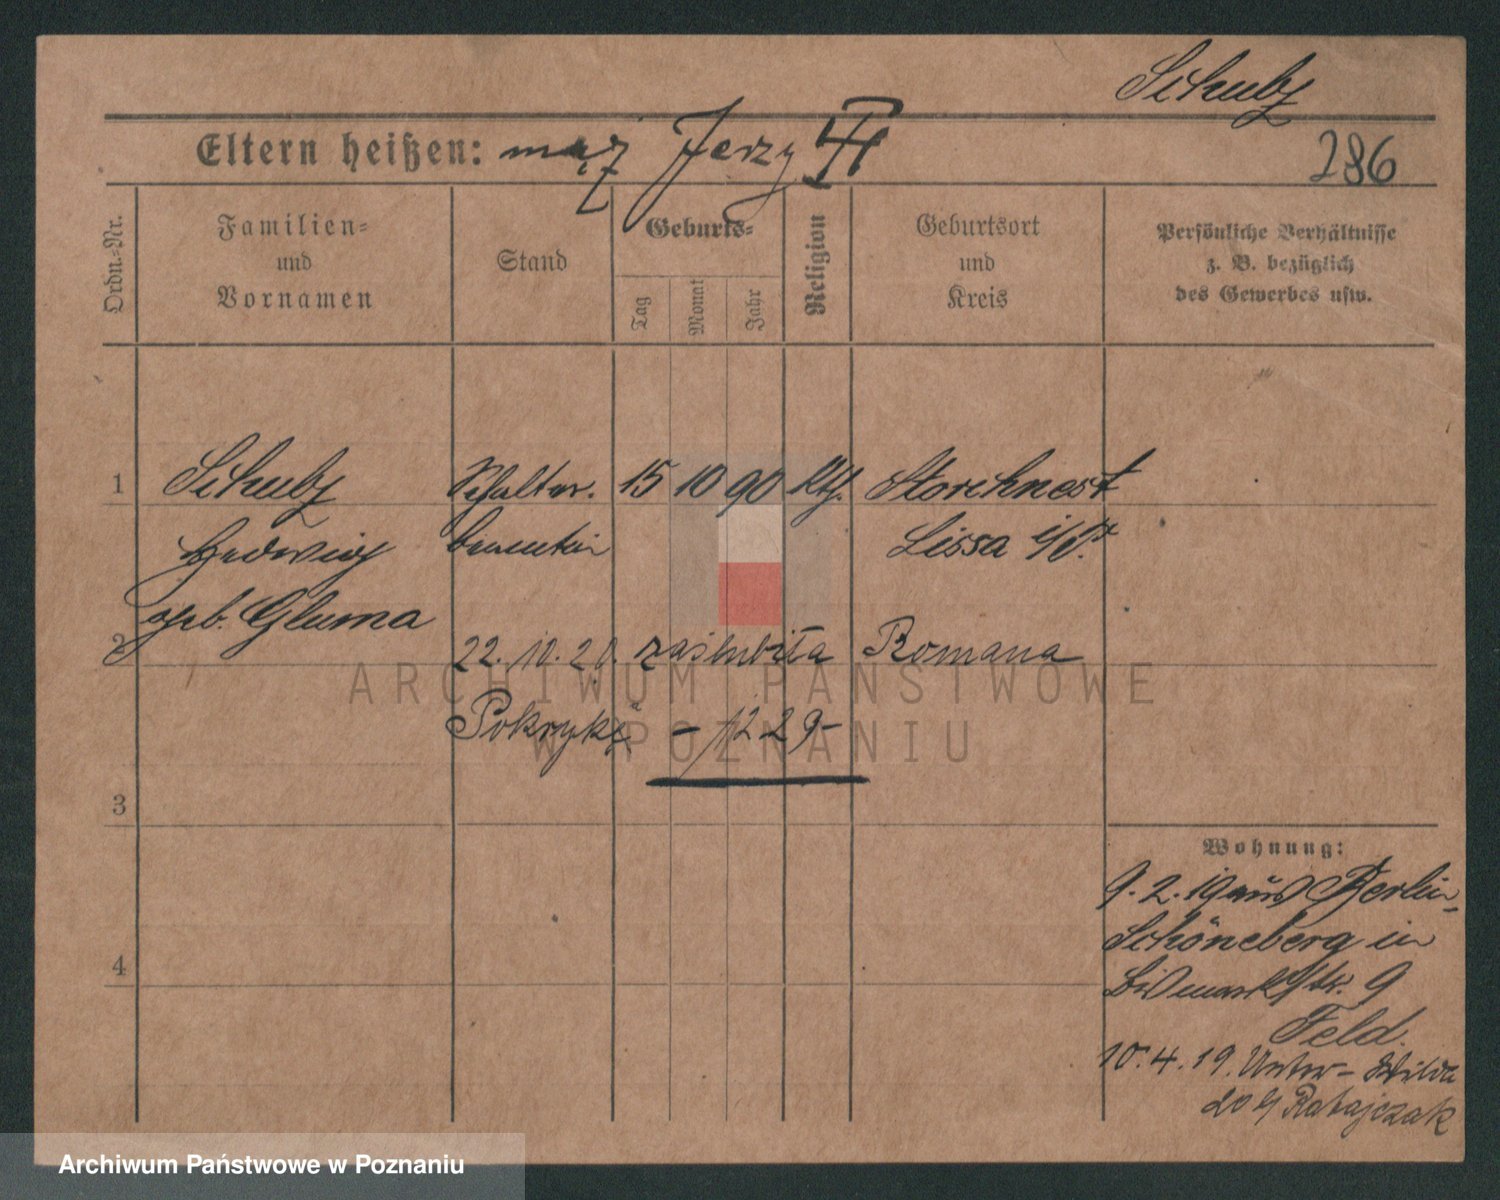 Schulz
Eltern heißen: mąż Jerzy
286
Ordn.-Nr.
Familien-
und
Vornamen
Stand
Geburts-
Tag
Monat
Jahr
Religion
Geburtsort
und
Kreis
Persönliche Verhältnisse
z. B. bezüglich
des Gewerbes usw.
1 Schulz Schalter. 15 10 90 kth. Storchnest
Hedwig beamtin Lissa i/P.
geb. Gluma
2 22.10.20. zaślubiła Romana
Pokrykę - 1229-
3
Wohnung:
9.2.19 aus Berlin-
Schöneberg in
Bismarckstr. 9
Feld.
4
10.4.19. Unter-Wilda
20 b/ Ratajczak
ARCHIWUM PAŃSTWOWE
W POZNANIU
Archiwum Państwowe w Poznaniu